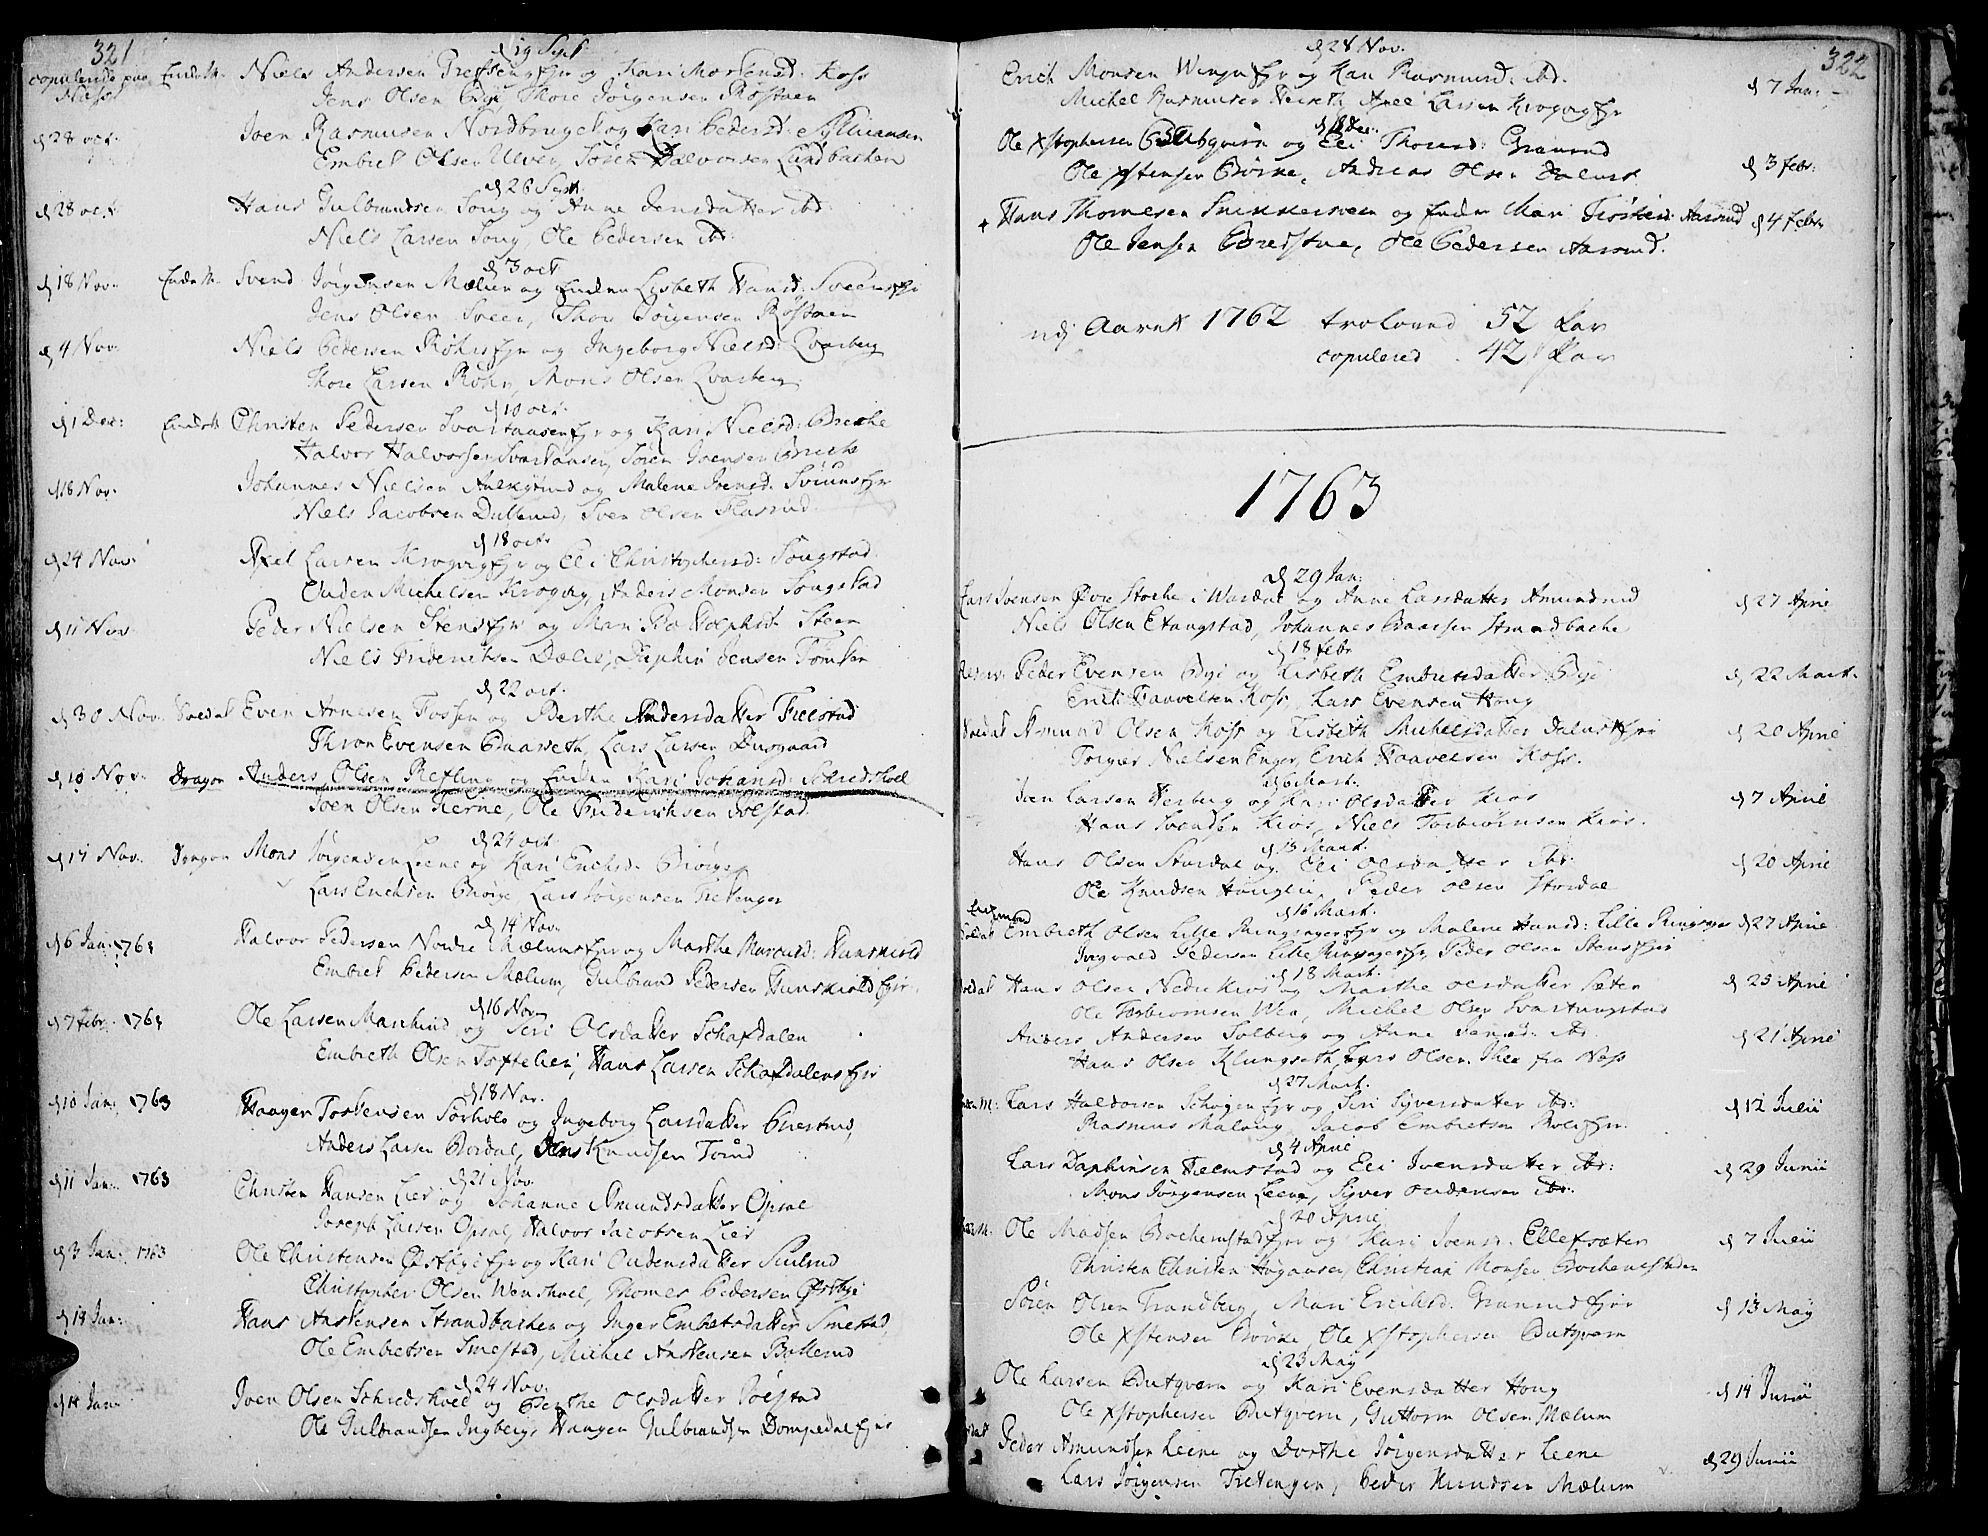 321
d 19 Sept
copulerede paa Næss Encke M. Niels Andersen Grefseng fyr og Kari Mortensd: Koss
Jens Olsen Bye, Thore Jörgensen Röstuen
d 28 oct. Joen Rasmusen Nordbruget og Kari Pedersd:
Embret Olsen Ulven, Sören Halvorsen Lundbachen
d 26 Sept.
d 28 oct Hans Gulbrandsen Song og Anne Jensdatter ibd
Niels Larsen Song, Ole Pedersen ibd:
d 3 oct
d 18 Nov. Encke M. Svend Jörgensen Mælum og Encken Lisbeth Hansd: Sveen
Jens Olsen Sveen, Thore Jörgensen Röstuen
d 4 Nov. Niels Pedersen Röhr fyr og Ingeborg Nielsd: Qvarberg
Thore Larsen Röhr, Mons Olsen Qvarberg
d 10 oct.
d 1 Dec: Enckem Christen Pedersen Svartaasen fyr og Kari Nielsd: Briche
Halvor Halvorsen Svartaasen, Sören Joensen Briche
d 18 Nov. Johannes Nielsen og Malene Svensd.
Niels Jacobsen Dullerud, Sven Olsen Flasrud
d 18 oct
d 24 Nov Axel Larsen Krogvig fyr og Eli Christophersd: Songstad
Ouden Michelsen Krogvig, Anders Monsen Songstad
d 11 Nov Peder Nielsen Stens fyr og Mari Rodolphsd Steen
Niels Friderichsen Dælie, Daphin Jensen Tömten
d 22 oct.
d 30 Nov. Soldat Even Arnesen Fossen og Berthe Andersdatter Freisrud
Thron Evensen Baarseth, Lars Larsen Diisgaard
d 10 Nov. Dragon Anders Olsen Refling og Encken Kari Johansd: Schredshoel
Joen Olsen Kerne, Ole Friderichsen Solstad
d 24 oct
d 17 Nov. Dragon Mons Jörgensen Leene og Kari Erichsd. Bröige
Lars Erichsen Bröige, Lars Jörgensen Fretenger
d 14 Nov.
d 6 Jan: 1763 Halvor Pedersen Nordre Mælums fyr og Marthe Marcusd: Hunskiold
Embret Pedersen Mælum, Gulbrand Pedersen Hunskiold fyr.
d 16 Nov
d 7 febr. 1763 Ole Larsen og Seri Olsdatter Schafdalen
Embreth Olsen Toftelien, Hans Larsen Schafdalens fyr
d 18 Nov.
d 10 Jan: 1763 Haagen Torstensen Sörholo og Ingeborg Larsdatter Buestad,
Anders Larsen Bordal, Jens Knudsen Torud
d 21 Nov.
d 11 Jan: 1763 Christen Hansen Lier og Johanne Amundsdatter Opsal
Joseph Larsen Opsal, Halvor Jacobsen Lier
d 3 Jan: 1763 Ole Christensen Østbye fyr og Kari Oudensdatter Siulrud
Christopher Olsen Wenskoel, Thomes Pedersen Østbye
d 14 Jan: Hans Anstensen Strandbachen og Inger Embretsdatter Smestad,
Ole Embretsen Smestad, Michel Anstensen Ballerud
d 24 Nov.
d 14 Jan Joen Olsen Schredshoel og Berthe Olsdatter Solstad
Ole Gulbrandsen Ingberg, Haagen Gulbrandsen Dompedal fyr
322
d 28 Nov.
Erich Monsen Wenjn fyr og Kari Rasmusd. ibd. d 7 Jan:
Michel Rasmusen, Axel Larsen Krogvig fyr
d 18 Dec.
Ole Xstophersen Butqvern og Eli Thorsd: Granrud d 3 febr:
Ole Xstensen Börke, Andreas Olsen Dalust
+ Hans Thomesen Snikkersveen og Encken Mari Aasrud d 4 febr
Ole Jensen Bredstue, Ole Pedersen Aasrud.
udj Aaret 1762 trolovud 52 Par
copulered 42 Par
1763
d 29 Jan:
Lars Svensen Øvre Stoche i Wardal og Anne Larsdatter Amundrud d 27 April
Niels Olsen Stangstad, Johannes Baarsen Strandbache
d 18 febr
Peder Evensen Bye og Lisbeth Embretsdatter Bye d 22 Mart.
Erich Paavelsen Koss, Lars Evensen Houg
Soldat Amund Olsen Koss og Lisbeth Michelsdatter Dalust fyr d 20 April
Torger Nielsen Enger, Erich Paavelsen Koss.
d 6 Mart.
Iven Larsen Berberg og Kari Olsdatter Kiös d 7 April
Hans Svendsen Kiös, Niels Torbiörnsen Kiös.
d 13 Mart.
Hans Olsen Stordal og Eli Olsdatter ibd. d 20 April
Ole Knudsen Hauglie, Peder Olsen Stordal
d 16 Mart.
Soldat Embreth Olsen Lille Ringsager fyr og Malene Hansd: Lille Ringsager d 27 April
Ingvald Pedersen Lille Ringsager fyr, Peder Olsen Stens fyr
d 18 Mart.
Soldat Hans Olsen Nedre Kiös og Marthe Olsdatter Sæter d 25 April
Ole Torbiörnsen Wen, Michel Olsen Svartungstad
Anders Andersen Solberg og Anne Jensd: ibd. d 21 April
Hans Olsen Klungseth, Lars Olsen Thee fra Næss
d 27 Mart.
Lars Haldorsen Schogen fyr og Seri Syversdatter ibd: d 12 Julii
Rasmus Malang, Jacob Embretsen Roli fyr.
d 4 April
Lars Daphinsen Helmstad og Eli Ivensdatter ibd: d 29 Junii
Mons Jörgensen Leene, Syver Oudensen ibd.
d 20 April
Ole Madsen Bochemstad fyr og Kari Joensd: Ellefsæter d 7 Julii
Christen Christen Högaasen, Christian Monsen Bochemstaden
Sören Olsen Trandberg, Mari Erichsd: Granrud fyr d 13 May
Ole Xstensen Börke, Ole Xstophersen Butqvern
d 23 May
Ole Larsen Butqvern og Kari Evensdatter Houg d 14 Junii
Ole Xstophersen Butqvern, Guttorm Olsen Mælum
Peder Amundsen Leene og Dorthe Jörgensdatter Leene d 29 Junii
Lars Jörgensen Fretengen, Peder Knudsen Mælum